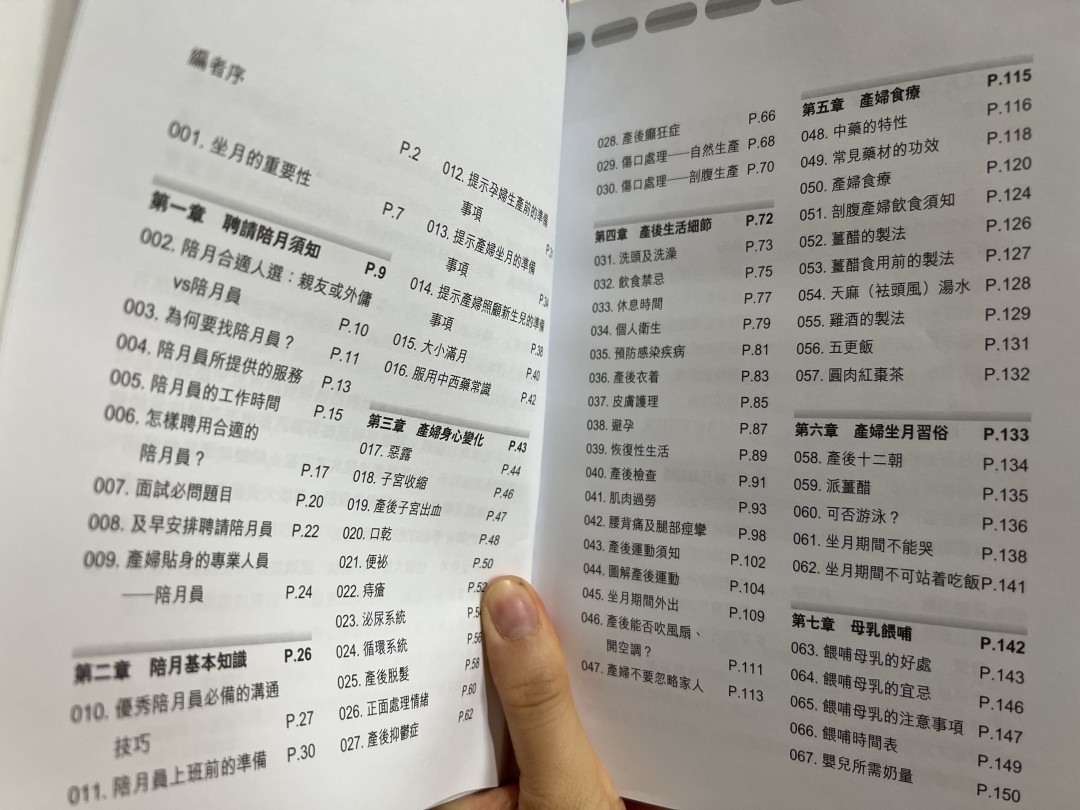 編者序
P.2
001. 坐月的重要性
P.7
第一章 聘請陪月須知
P.9
002. 陪月合適人選：親友或外傭
vs陪月員
P.10
003. 為何要找陪月員？
P.11
004. 陪月員所提供的服務
P.13
005. 陪月員的工作時間
P.15
006. 怎樣聘用合適的
陪月員？
P.17
007. 面試必問題目
P.20
008. 及早安排聘請陪月員
P.22
009. 產婦貼身的專業人員
——陪月員
P.24
第二章 陪月基本知識
P.26
010. 優秀陪月員必備的溝通
技巧
P.27
011. 陪月員上班前的準備
P.30
012. 提示孕婦生產前的準備
事項
013. 提示產婦坐月的準備
事項
P.34
014. 提示產婦照顧新生兒的準備
事項
P.38
015. 大小滿月
P.40
016. 服用中西藥常識
P.42
第三章 產婦身心變化
P.43
017. 惡露
P.44
018. 子宮收縮
P.46
019. 產後子宮出血
P.47
020. 口乾
P.48
021. 便祕
P.50
022. 痔瘡
P.52
023. 泌尿系統
P.54
024. 循環系統
P.56
025. 產後脱髮
P.58
026. 正面處理情緒
P.60
027. 產後抑鬱症
P.62
028. 產後癲狂症
P.66
029. 傷口處理——自然生產
P.68
030. 傷口處理——剖腹生產
P.70
第四章 產後生活細節
P.72
031. 洗頭及洗澡
P.73
032. 飲食禁忌
P.75
033. 休息時間
P.77
034. 個人衞生
P.79
035. 預防感染疾病
P.81
036. 產後衣着
P.83
037. 皮膚護理
P.85
038. 避孕
P.87
039. 恢復性生活
P.89
040. 產後檢查
P.91
041. 肌肉過勞
P.93
042. 腰背痛及腿部痙攣
P.98
043. 產後運動須知
P.102
044. 圖解產後運動
P.104
045. 坐月期間外出
P.109
046. 產後能否吹風扇、
開空調？
P.111
047. 產婦不要忽略家人
P.113
第五章 產婦食療
P.115
048. 中藥的特性
P.116
049. 常見藥材的功效
P.118
050. 產婦食療
P.120
051. 剖腹產婦飲食須知
P.124
052. 薑醋的製法
P.126
053. 薑醋食用前的製法
P.127
054. 天麻（袪頭風）湯水
P.128
055. 雞酒的製法
P.129
056. 五更飯
P.131
057. 圓肉紅棗茶
P.132
第六章 產婦坐月習俗
P.133
058. 產後十二朝
P.134
059. 派薑醋
P.135
060. 可否游泳？
P.136
061. 坐月期間不能哭
P.138
062. 坐月期間不可站着吃飯
P.141
第七章 母乳餵哺
P.142
063. 餵哺母乳的好處
P.143
064. 餵哺母乳的宜忌
P.146
065. 餵哺母乳的注意事項
P.147
066. 餵哺時間表
P.149
067. 嬰兒所需奶量
P.150